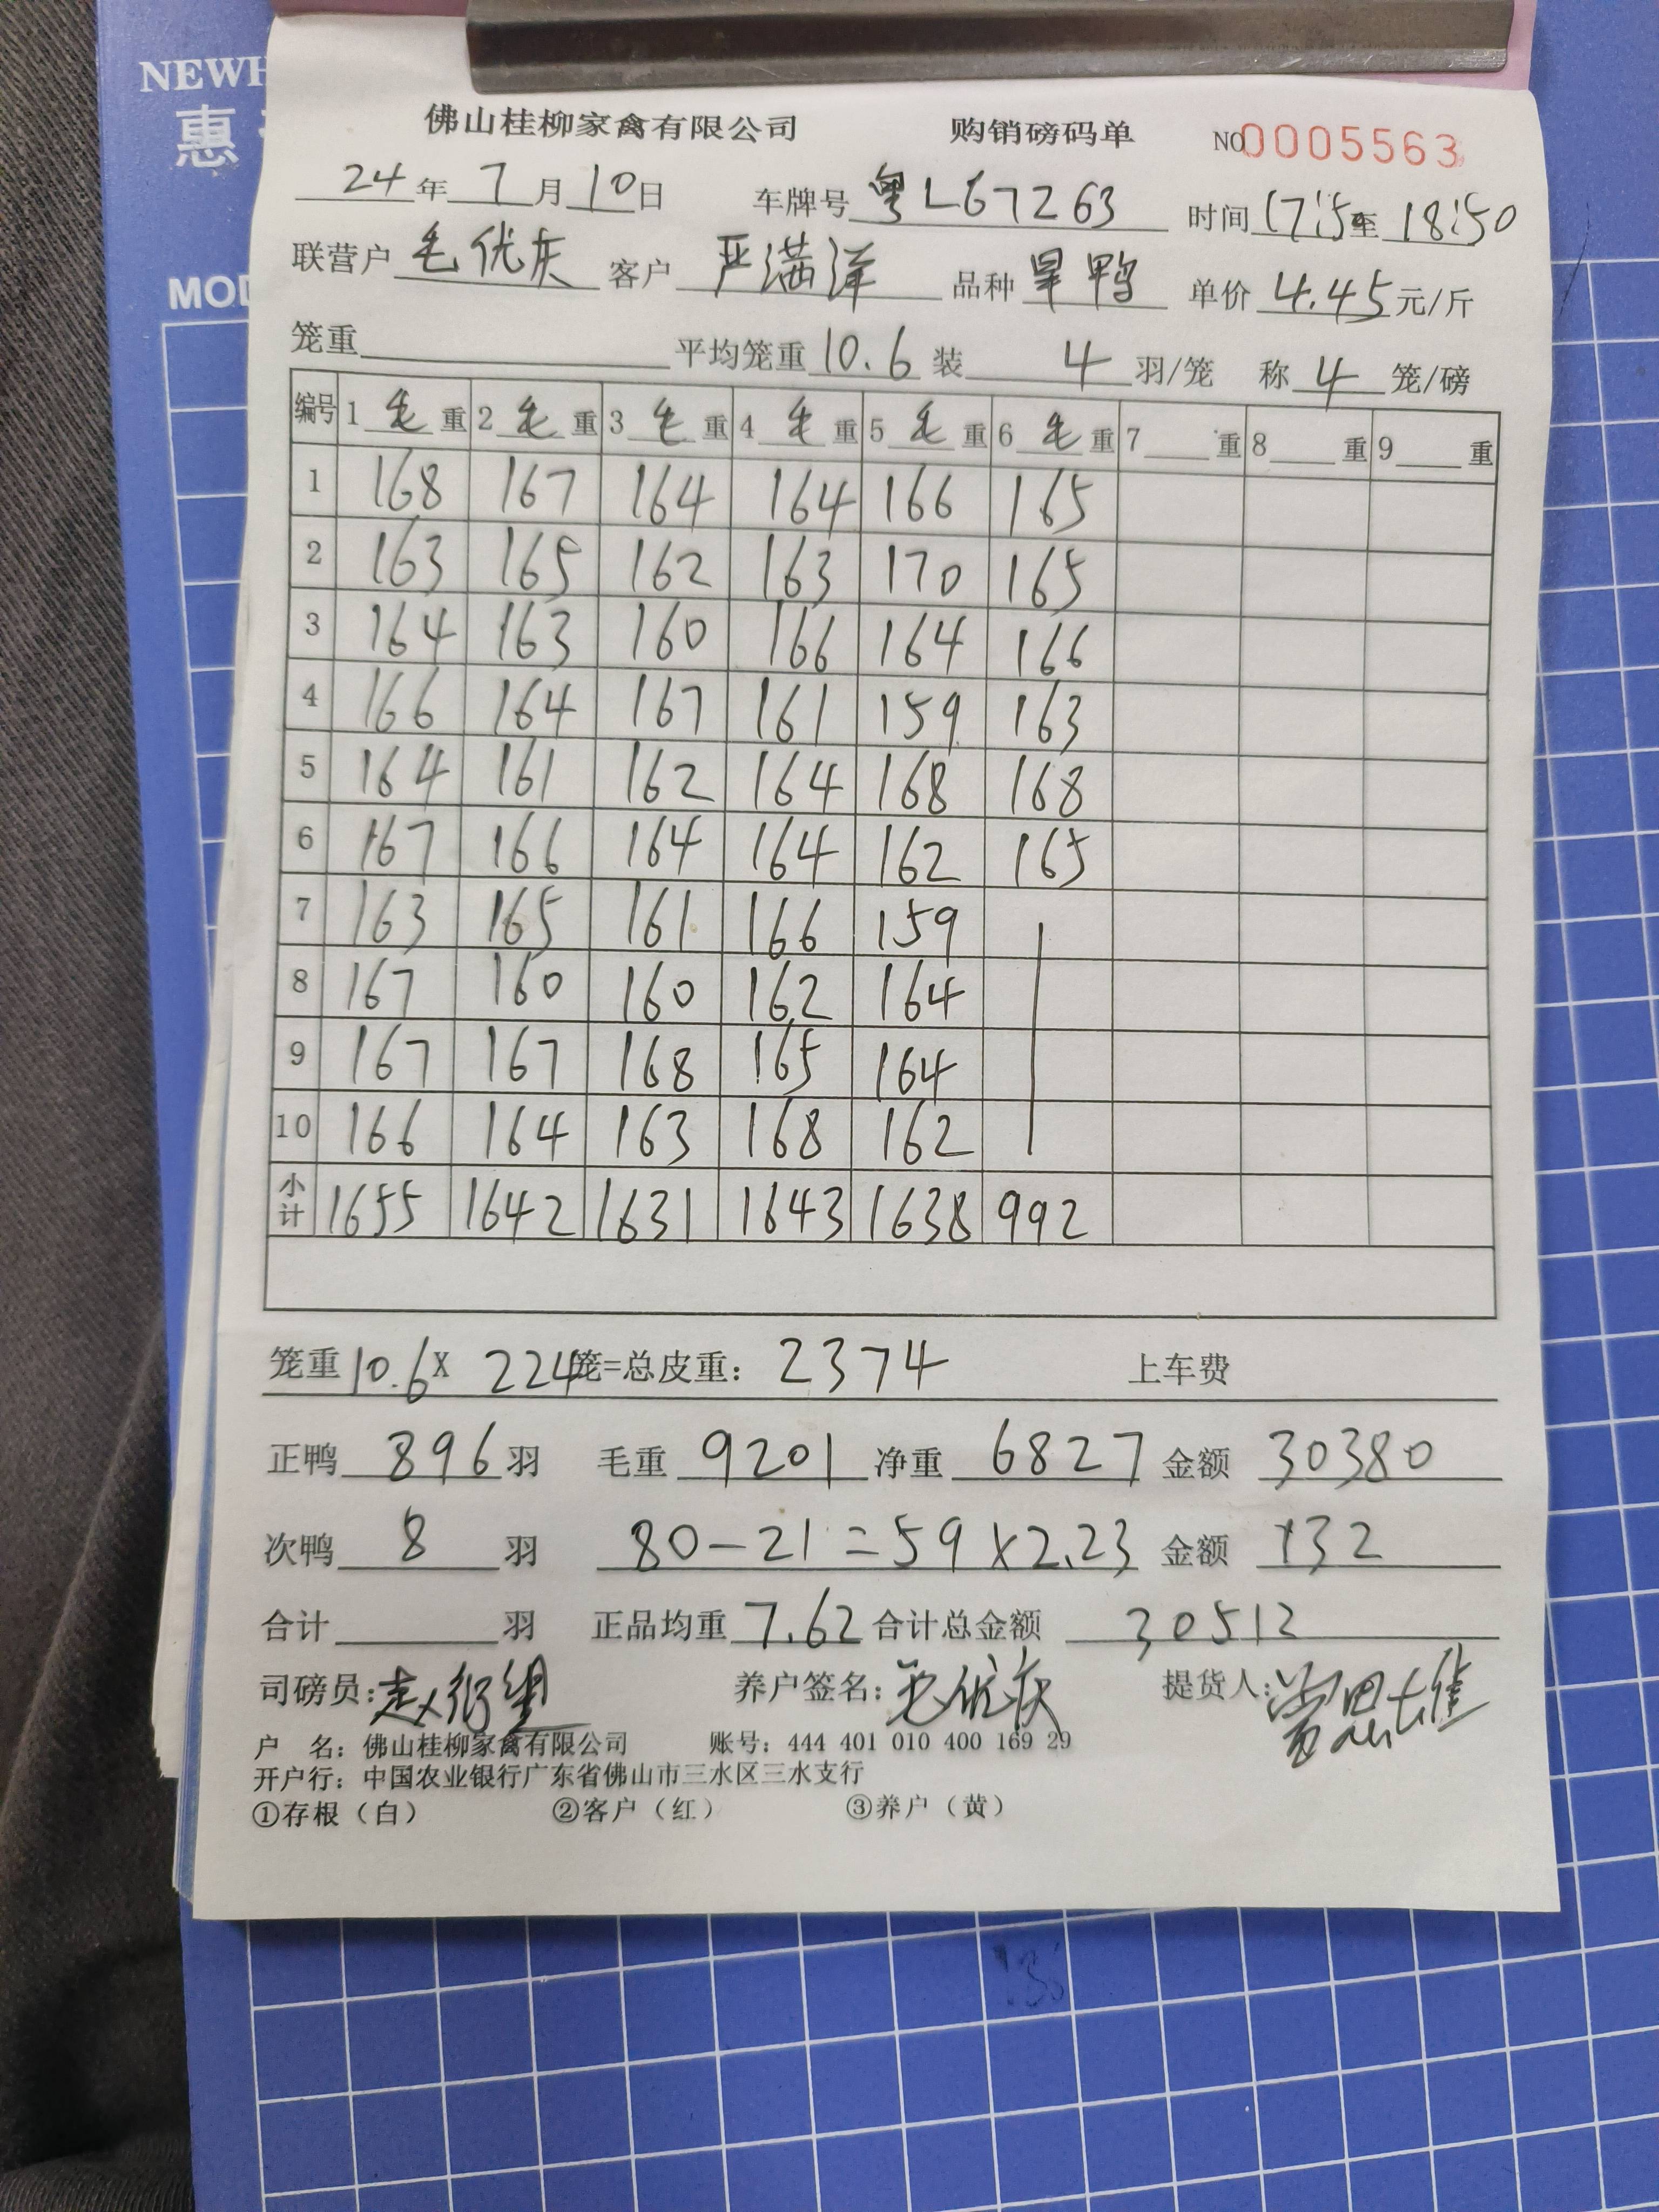 NEWH
惠
MOD
佛山桂柳家禽有限公司 购销磅码单 NO0005563
24年7月10日 车牌号粤L67263 时间17:5至18:50
联营户毛优灰 客户严满洋 品种旱鸭 单价4.45元/斤
笼重 平均笼重10.6装4羽/笼 称4笼/磅
编号 1毛重 2毛重 3毛重 4毛重 5毛重 6毛重 7重 8重 9重
1 168 167 164 164 166 165
2 163 165 162 163 170 165
3 164 163 160 166 164 166
4 166 164 167 161 159 163
5 164 161 162 164 168 168
6 167 166 164 164 162 165
7 163 165 161 166 159
8 167 160 160 162 164
9 167 167 168 165 164
10 166 164 163 168 162
小计 1655 1642 1631 1643 1638 992
笼重10.6X 224笼=总皮重：2374 上车费
正鸭896羽 毛重9201净重6827金额30380
次鸭8羽 80-21=59×2.23金额132
合计羽 正品均重7.62合计总金额30512
司磅员： 养户签名：毛优灰 提货人：
户 名：佛山桂柳家禽有限公司 账号：444 401 010 400 169 29
开户行：中国农业银行广东省佛山市三水区三水支行
①存根（白） ②客户（红） ③养户（黄）